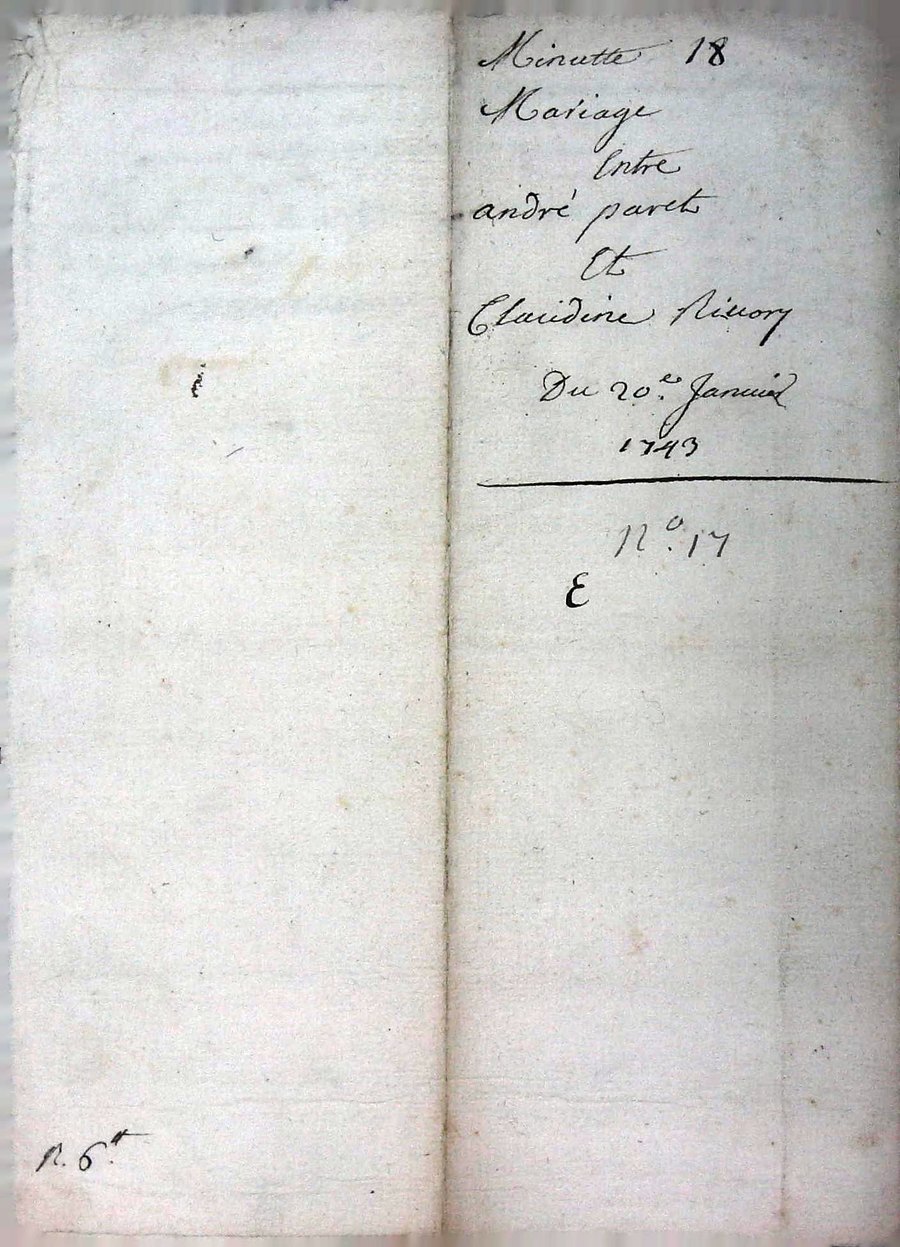 Minutte 18
Mariage
Entre
andré paret
Et
Claudine Riuory
Du 20e. Januier
1743
No. 17
E
R. 6#